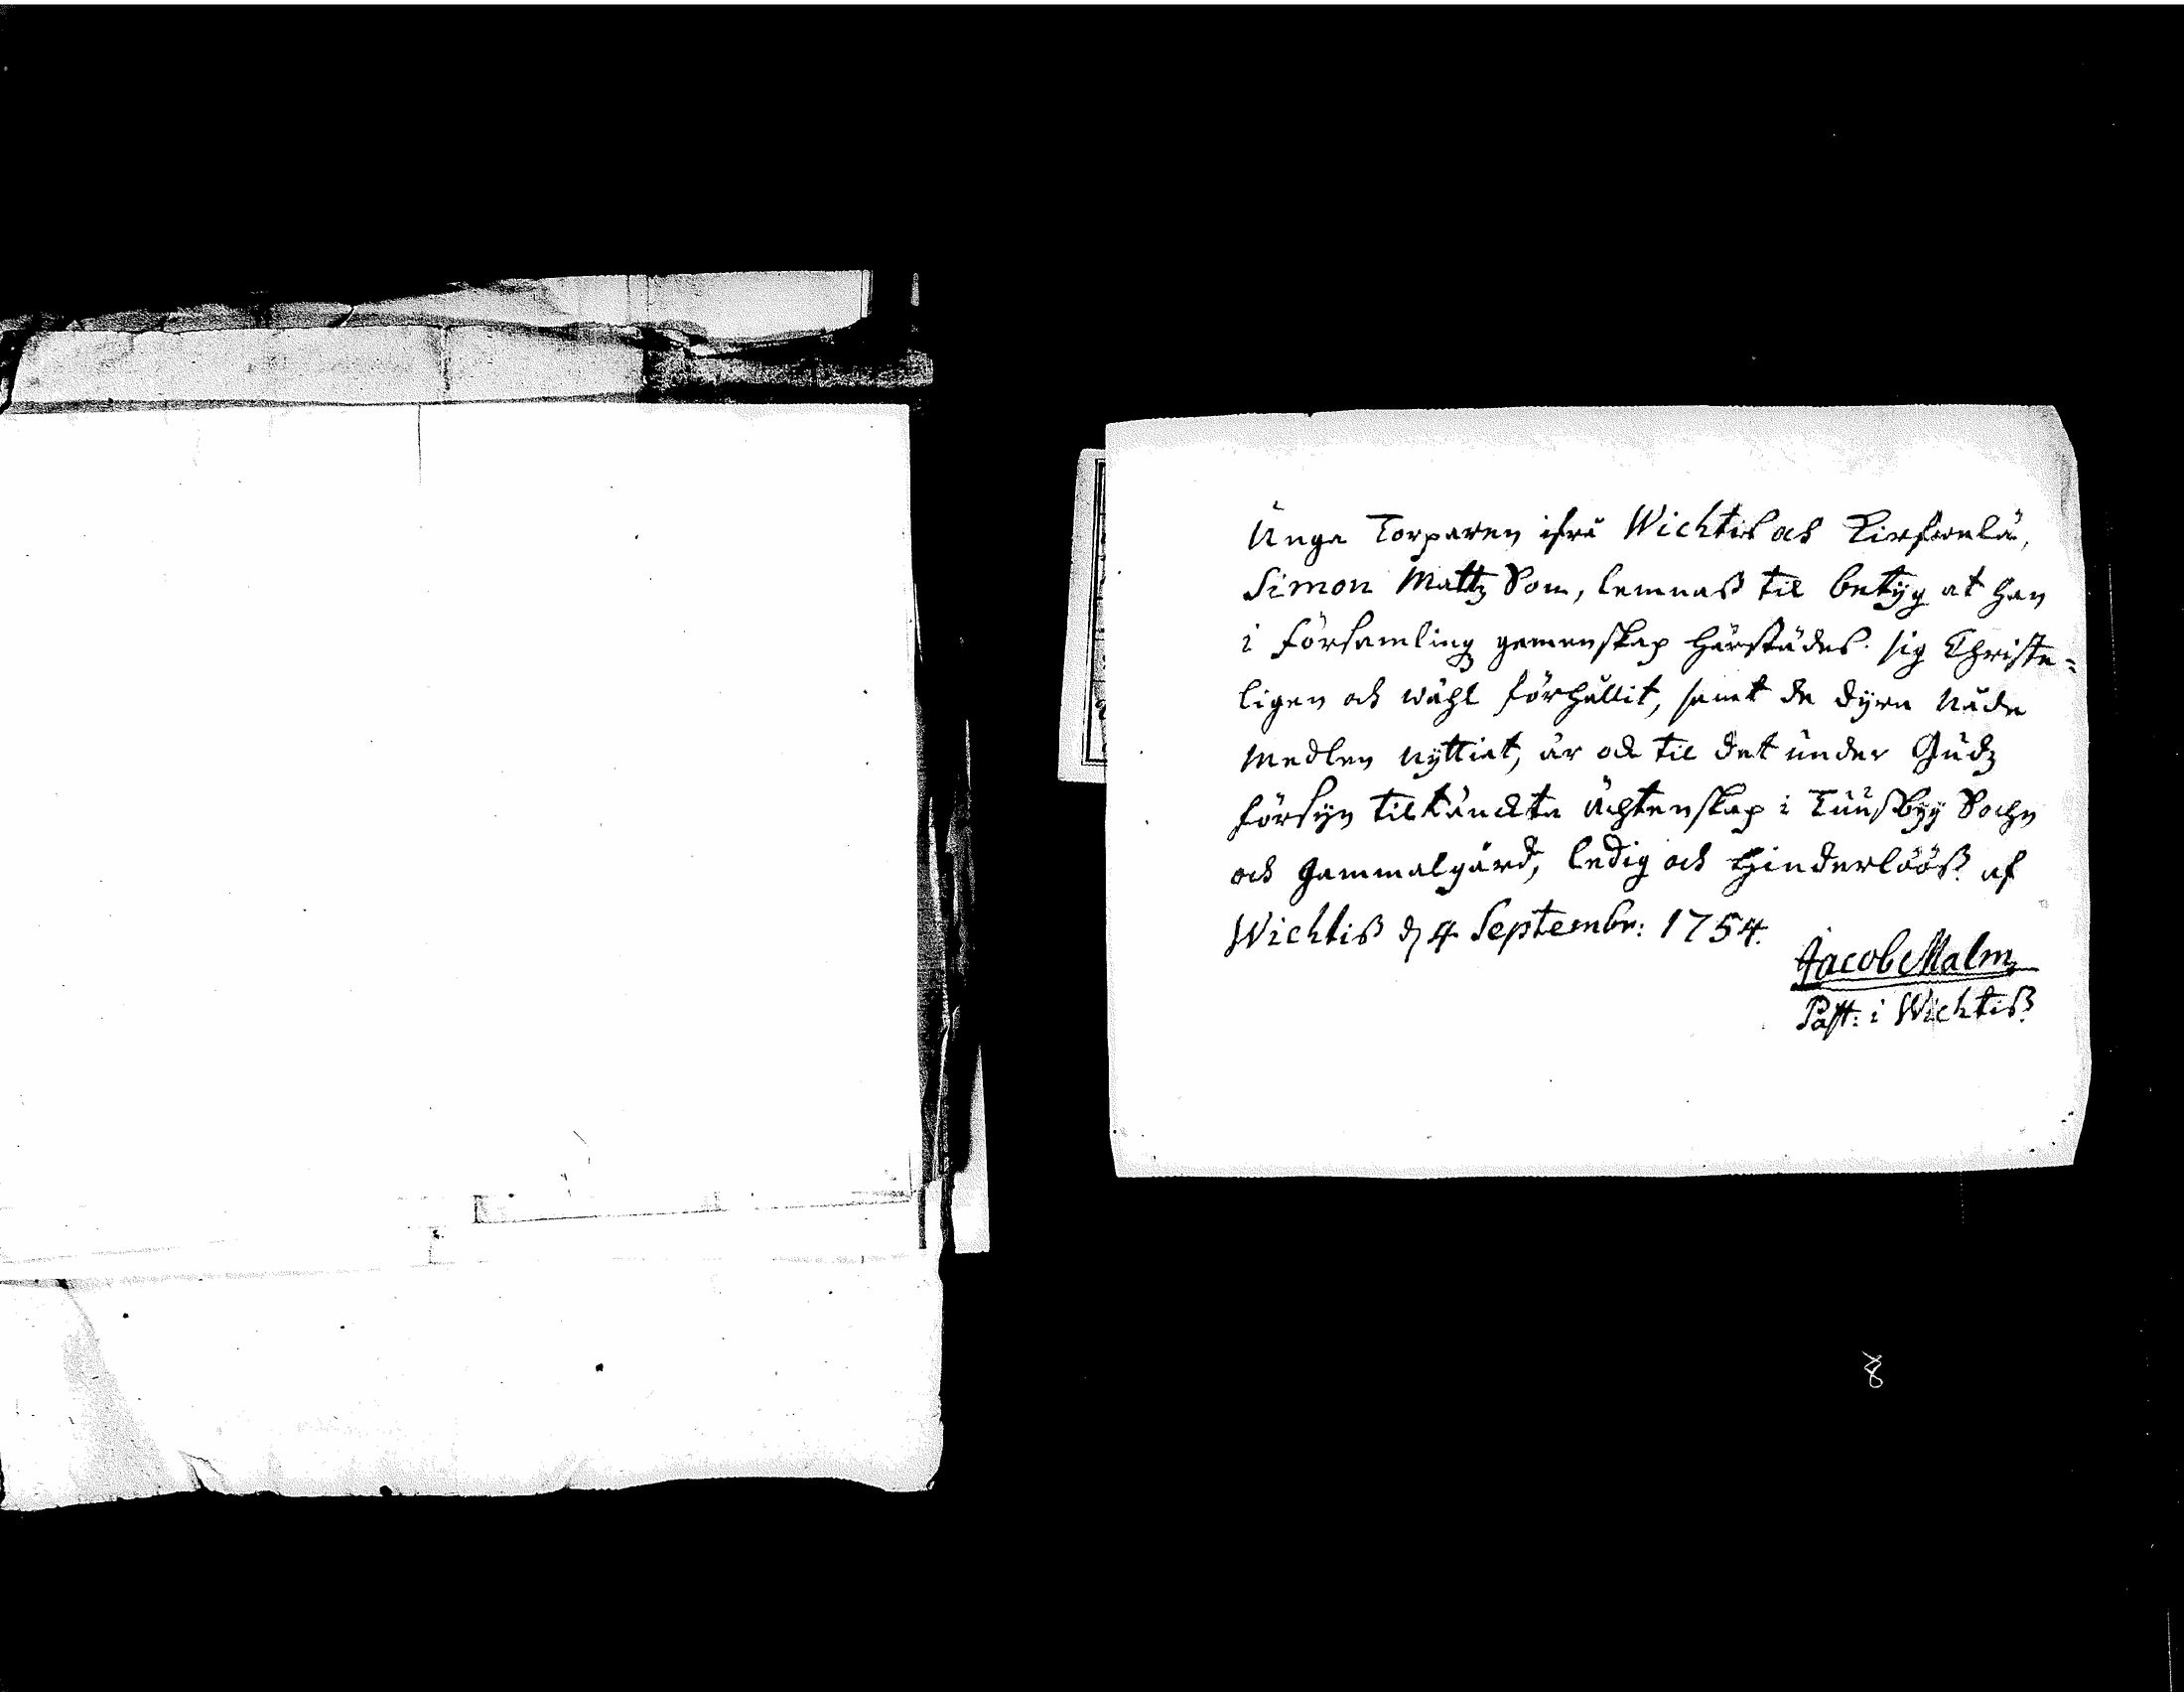 Unga Torparen ifrå Wichtis och
Simon Mattz Son, lemnaß til betyg at han
i församling gemenskap härstädes sig Christe=
ligen och wähl förhållit, samt de dyra Nåde
Medlen nyttiat, är och til det under Gudz
försyn tiltänckta ächtenskap i Tuusby Sochn
och Gammalgård, ledig och hinderlööß. af
Wichtiß d 4 Septembr: 1754.
Jacob Malm
Past: i Wichtiß
8